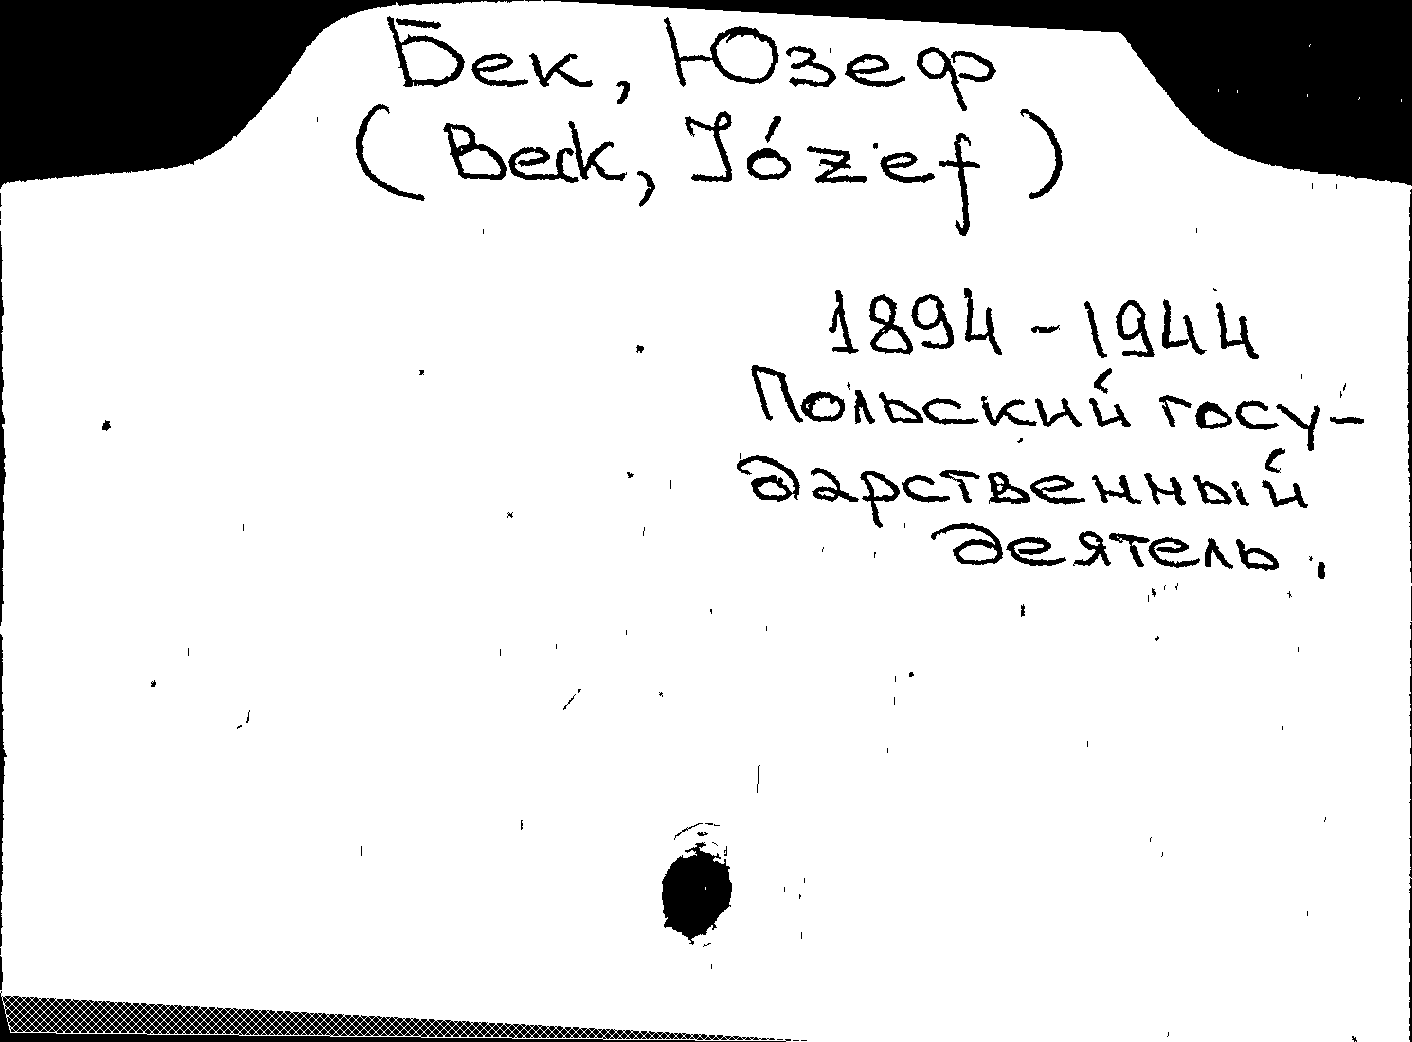 Бек, Юзеф
(Beck, Józef)
1894-1944
Польский госу-
дарственный
деятель.